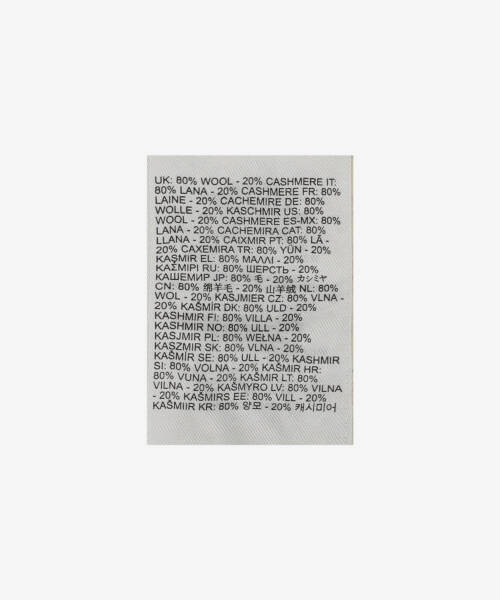 UK: 80% WOOL - 20% CASHMERE IT:
80% LANA - 20% CACHEMIRE FR: 80%
LAINE - 20% CACHEMIRE DE: 80%
WOLLE - 20% KASCHMIR US: 80%
WOOL - 20% CASHMERE ES-MX: 80%
LANA - 20% CACHEMIRA CAT: 80%
LLANA - 20% CAIXMIR PT: 80% LÃ -
20% CAXEMIRA TR: 80% YÜN - 20%
KAŞMIR EL: 80% ΜΑΛΛΙ - 20%
ΚΑΣΜΙΡΙ RU: 80% ШЕРСТЬ - 20%
КАШЕМИР JP: 80% 毛 - 20% カシミヤ
CN: 80% 绵羊毛 - 20% 山羊绒 NL: 80%
WOL - 20% KASJMIER CZ: 80% VLNA -
20% KAŠMÍR DK: 80% ULD - 20%
KASHMIR FI: 80% VILLA - 20%
KASHMIR NO: 80% ULL - 20%
KASJMIR PL: 80% WEŁNA - 20%
KASZMIR SK: 80% VLNA - 20%
KAŠMÍR SE: 80% ULL - 20% KASHMIR
SI: 80% VOLNA - 20% KAŠMIR HR:
80% VUNA - 20% KAŠMIR LT: 80%
VILNA - 20% KAŠMYRO LV: 80% VILNA
- 20% KAŠMIRS EE: 80% VILL - 20%
KAŠMIIR KR: 80% 양모 - 20% 캐시미어